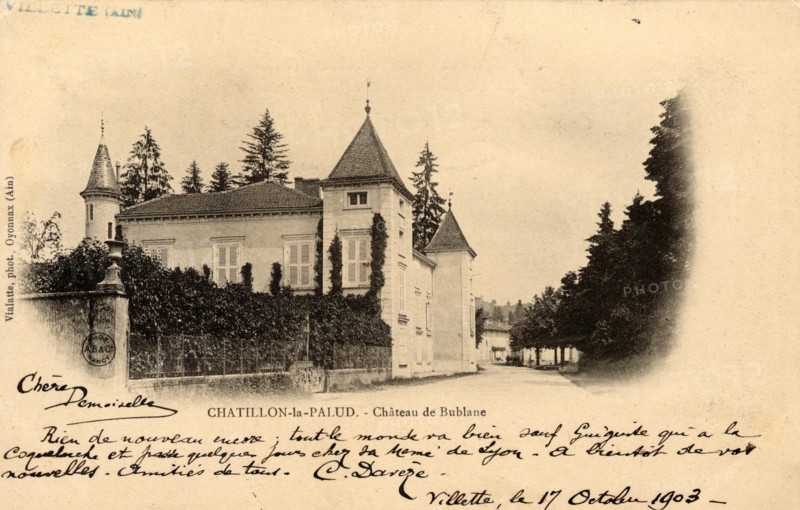 VILLETTE (AIN)
Vialatte, phot. Oyonnax (Ain)
CHATILLON-la-PALUD. - Château de Bublane
Chère
Demoiselle
Rien de nouveau encore ; tout le monde va bien sauf Guiguite qui a la
Coqueluche et passe quelques jours chez sa Mémé de Lyon - A bientôt de vos
nouvelles - Amitiés de tous - C. Darèze -
Villette, le 17 Octobre 1903 -